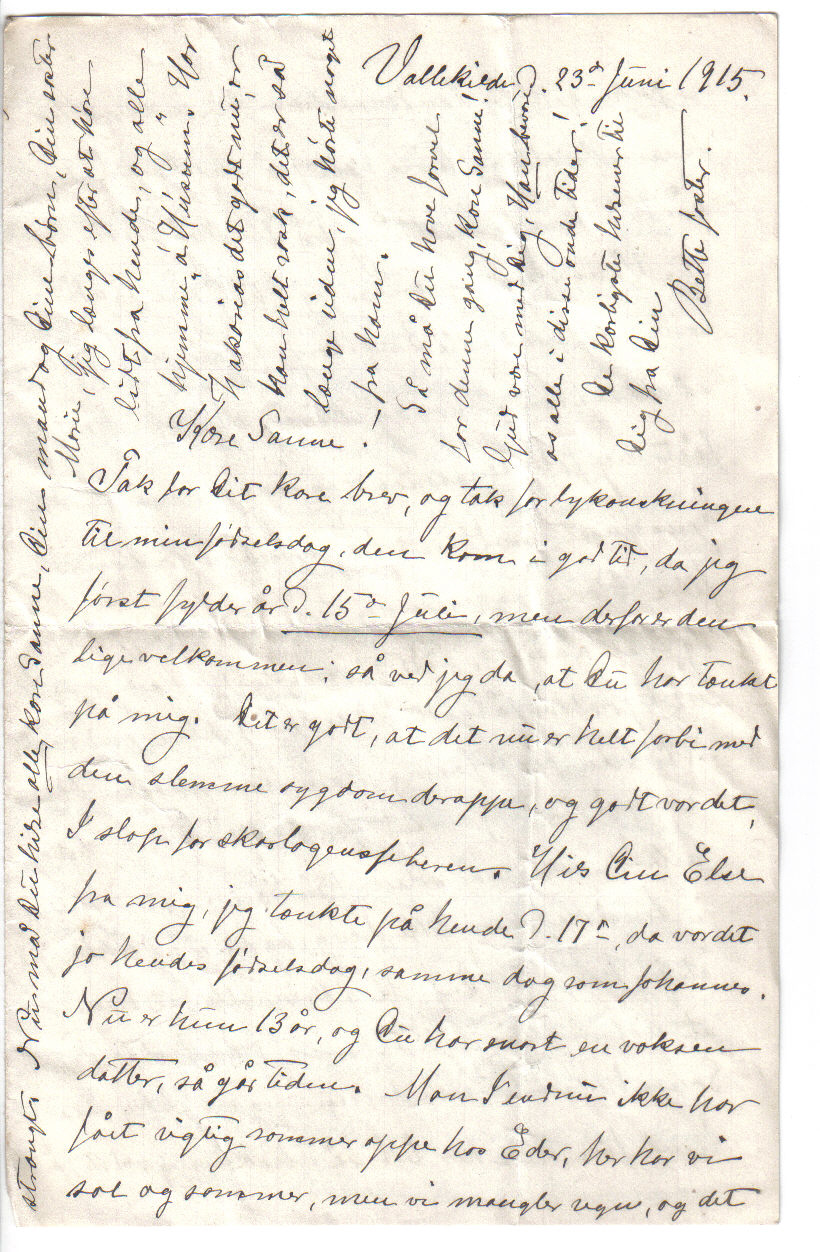 Vallekilde d. 23d Juni 1915.
Kære Sanne!
Tak for Dit kære brev, og tak for lykønskningen
til min fødselsdag, den kom i god tid, da jeg
først fylder år d. 15de Juli, men derfor er den
lige velkommen; så ved jeg da, at Du har tænkt
på mig. Det er godt, at det nu er helt forbi med
den slemme sygdom deroppe, og godt var det,
I slap for skarlagensfeberen. Hils Din Else
fra mig, jeg tænkte på hende d. 17de, da var det
jo hendes fødselsdag, samme dag som Johannes.
Nu er hun 13 år, og Du har snart en voksen
datter, så går tiden. Mon I endnu ikke har
fået rigtig sommer oppe hos Eder, her har vi
sol og sommer, men vi mangler regn, og det
strængt. Nu må Du hilse alle, kære Sanne, Din mand og Dine børn, Din søster
Marie, jeg længes efter at høre
lidt fra hende, og alle
hjemme på "Husum". Har
Zakarias det godt nu, er
han helt rask, det er så
længe siden, jeg hørte noget
fra ham.
Så må Du have farvel
for denne gang, kære Sanne!
Gud være med Dig, Han bevare
os alle i disse onde tider!
De kærligste hilsener til
Dig fra Din
Bette faster.